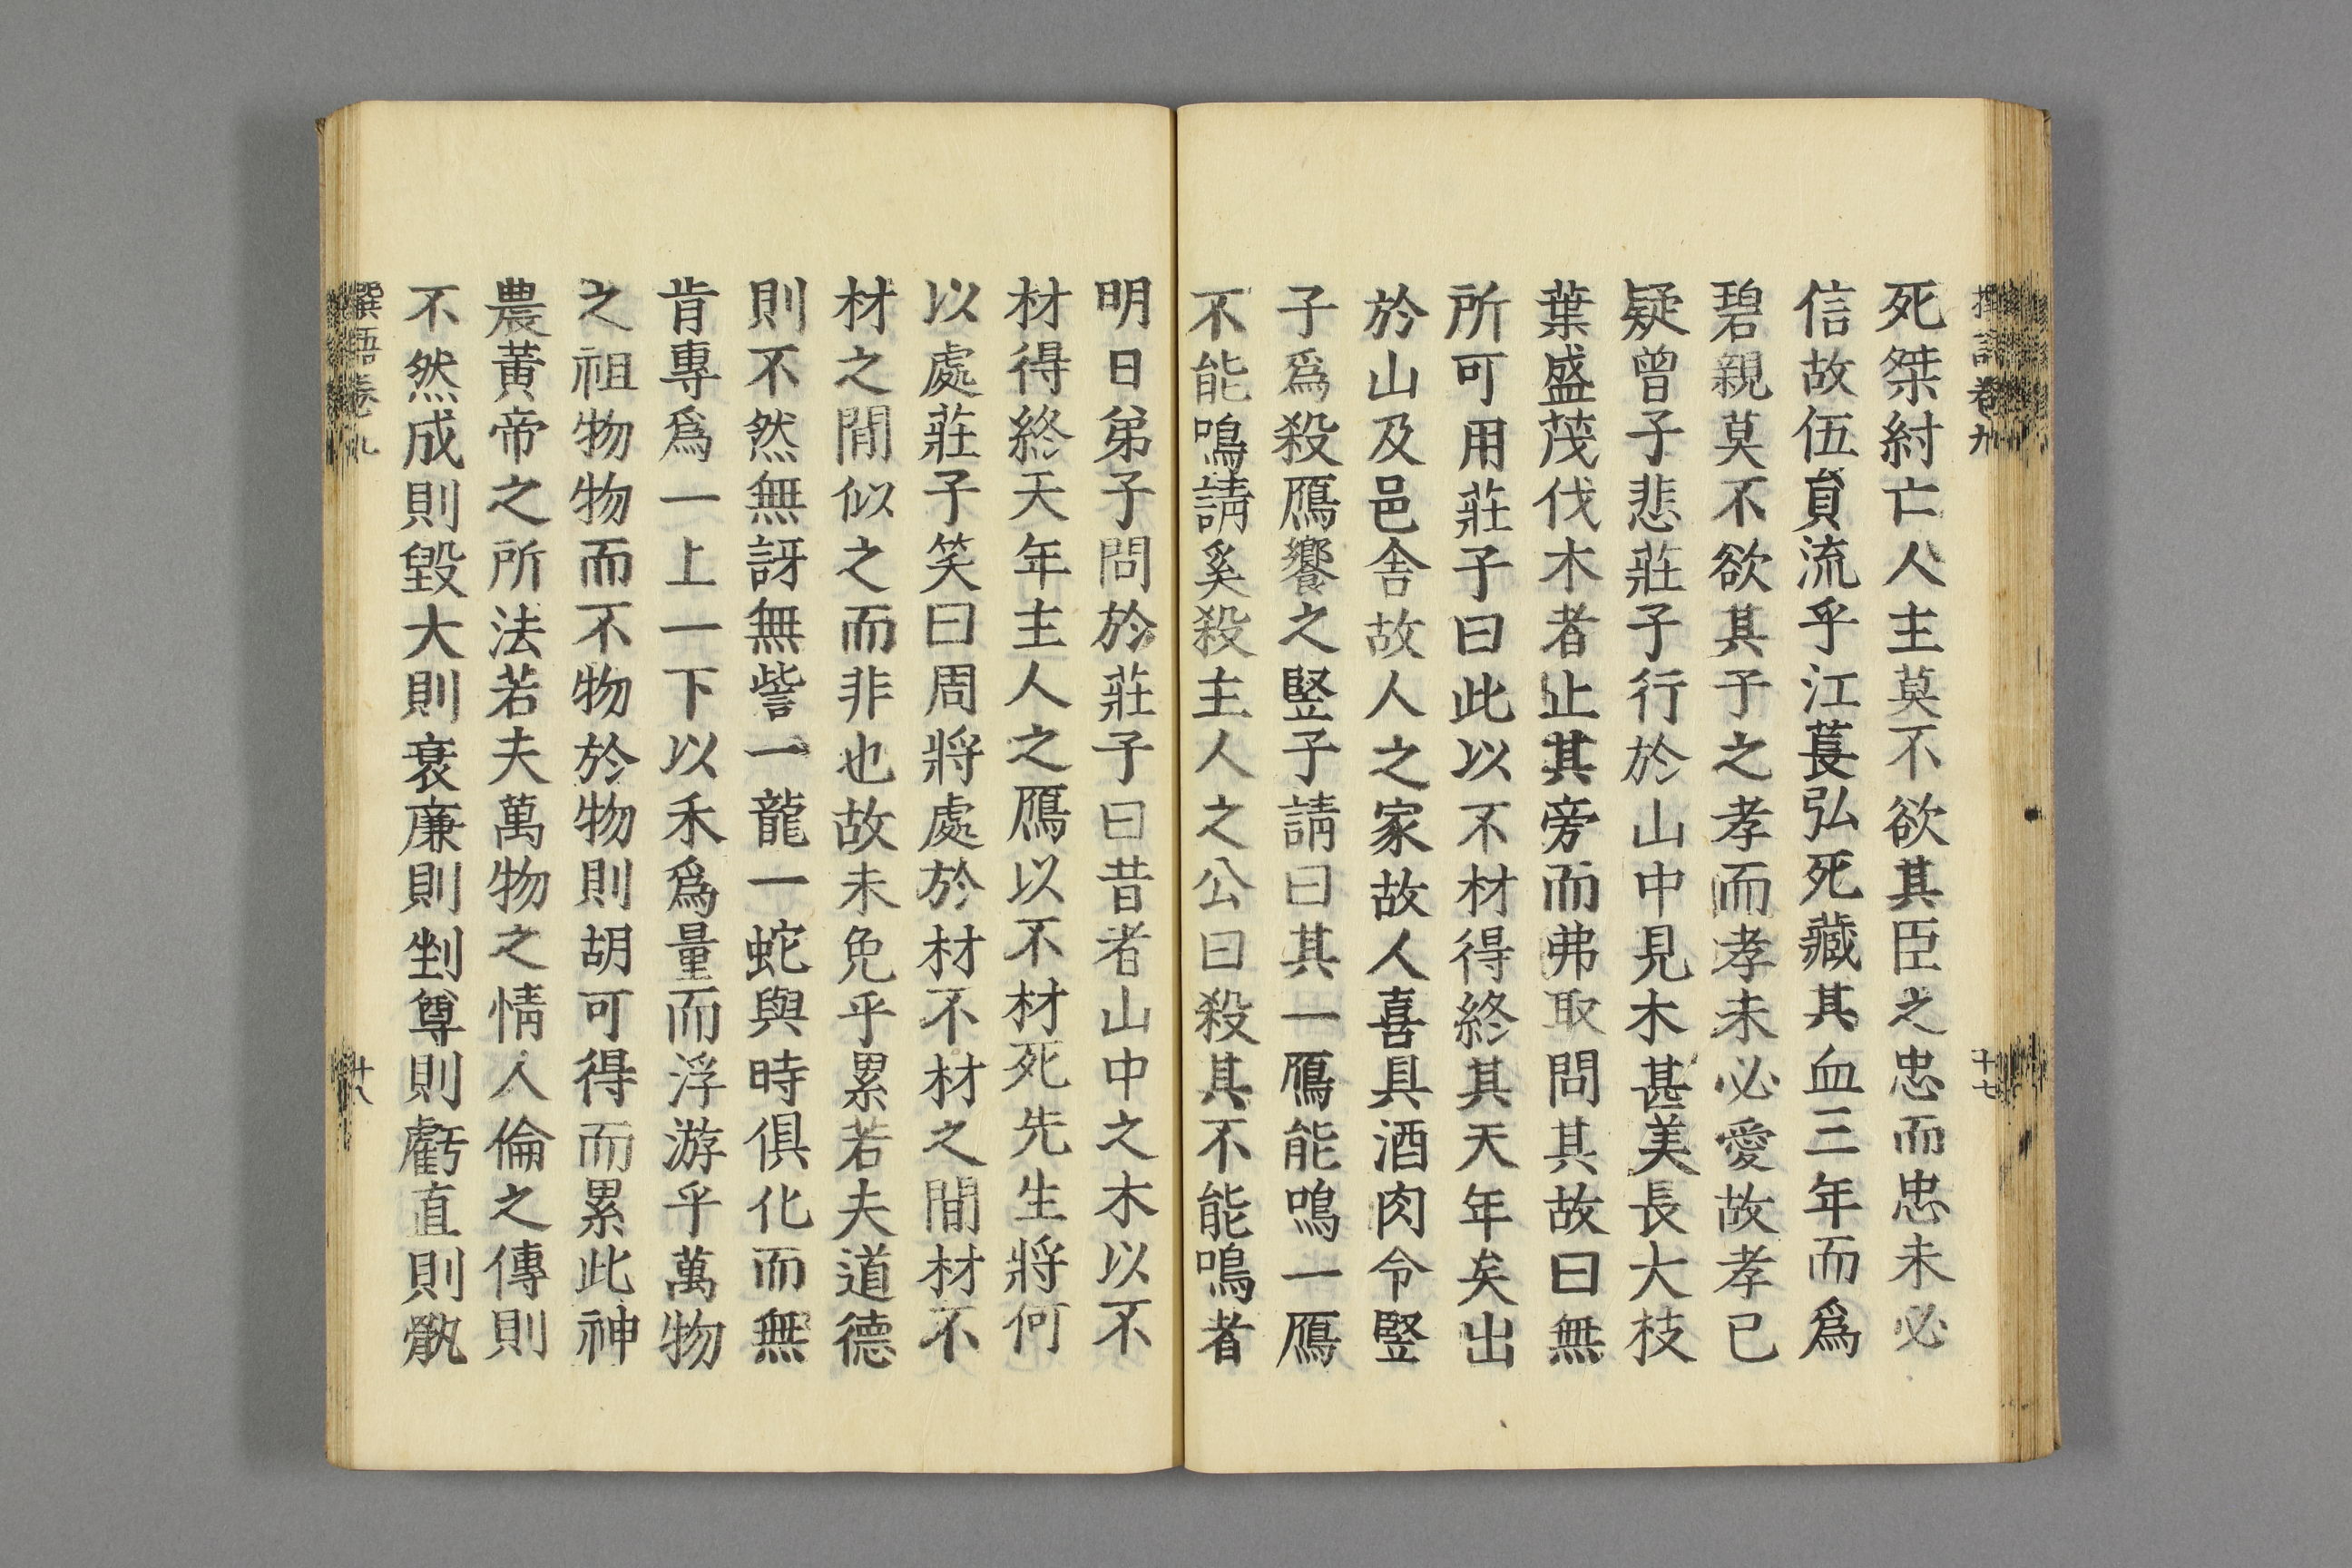 死桀紂亡人主莫不欲其臣之忠而忠未必
信故伍員流乎江萇弘死藏其血三年而爲
碧親莫不欲其子之孝而孝未必愛故孝已
疑曾子悲莊子行於山中見木甚美長大枝
葉盛茂伐木者止其旁而弗取問其故曰無
所可用莊子曰此以不材得終其天年矣出
於山及邑舍故人之家故人喜具酒肉令竪
子爲殺鴈饗之竪子請曰其一鴈能鳴一鴈
不能鳴請奚殺主人之公曰殺其不能鳴者
明日弟子問於莊子曰昔者山中之木以不
材得終天年主人之鴈以不材死先生將何
以處莊子笑曰周將處於材不材之間材不
材之間似之而非也故未免乎累若夫道德
則不然無訝無訾一龍一蛇與時俱化而無
肯專爲一上一下以禾爲量而浮游乎萬物
之祖物物而不物於物則胡可得而累此神
農黃帝之所法若夫萬物之情人倫之傳則
不然成則毀大則衰廉則剉尊則虧直則骫
卷九
十七
卷九
十八